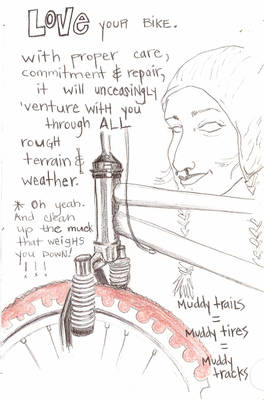 LOVE YOUR BIKE.
with proper care,
commitment & repair,
it will unceasingly
'venture with you
through ALL
rough
terrain &
weather.
* Oh yeah.
And clean
up the muck
that weighs
you down!
! ! !
Muddy trails
=
Muddy tires
=
Muddy
tracks